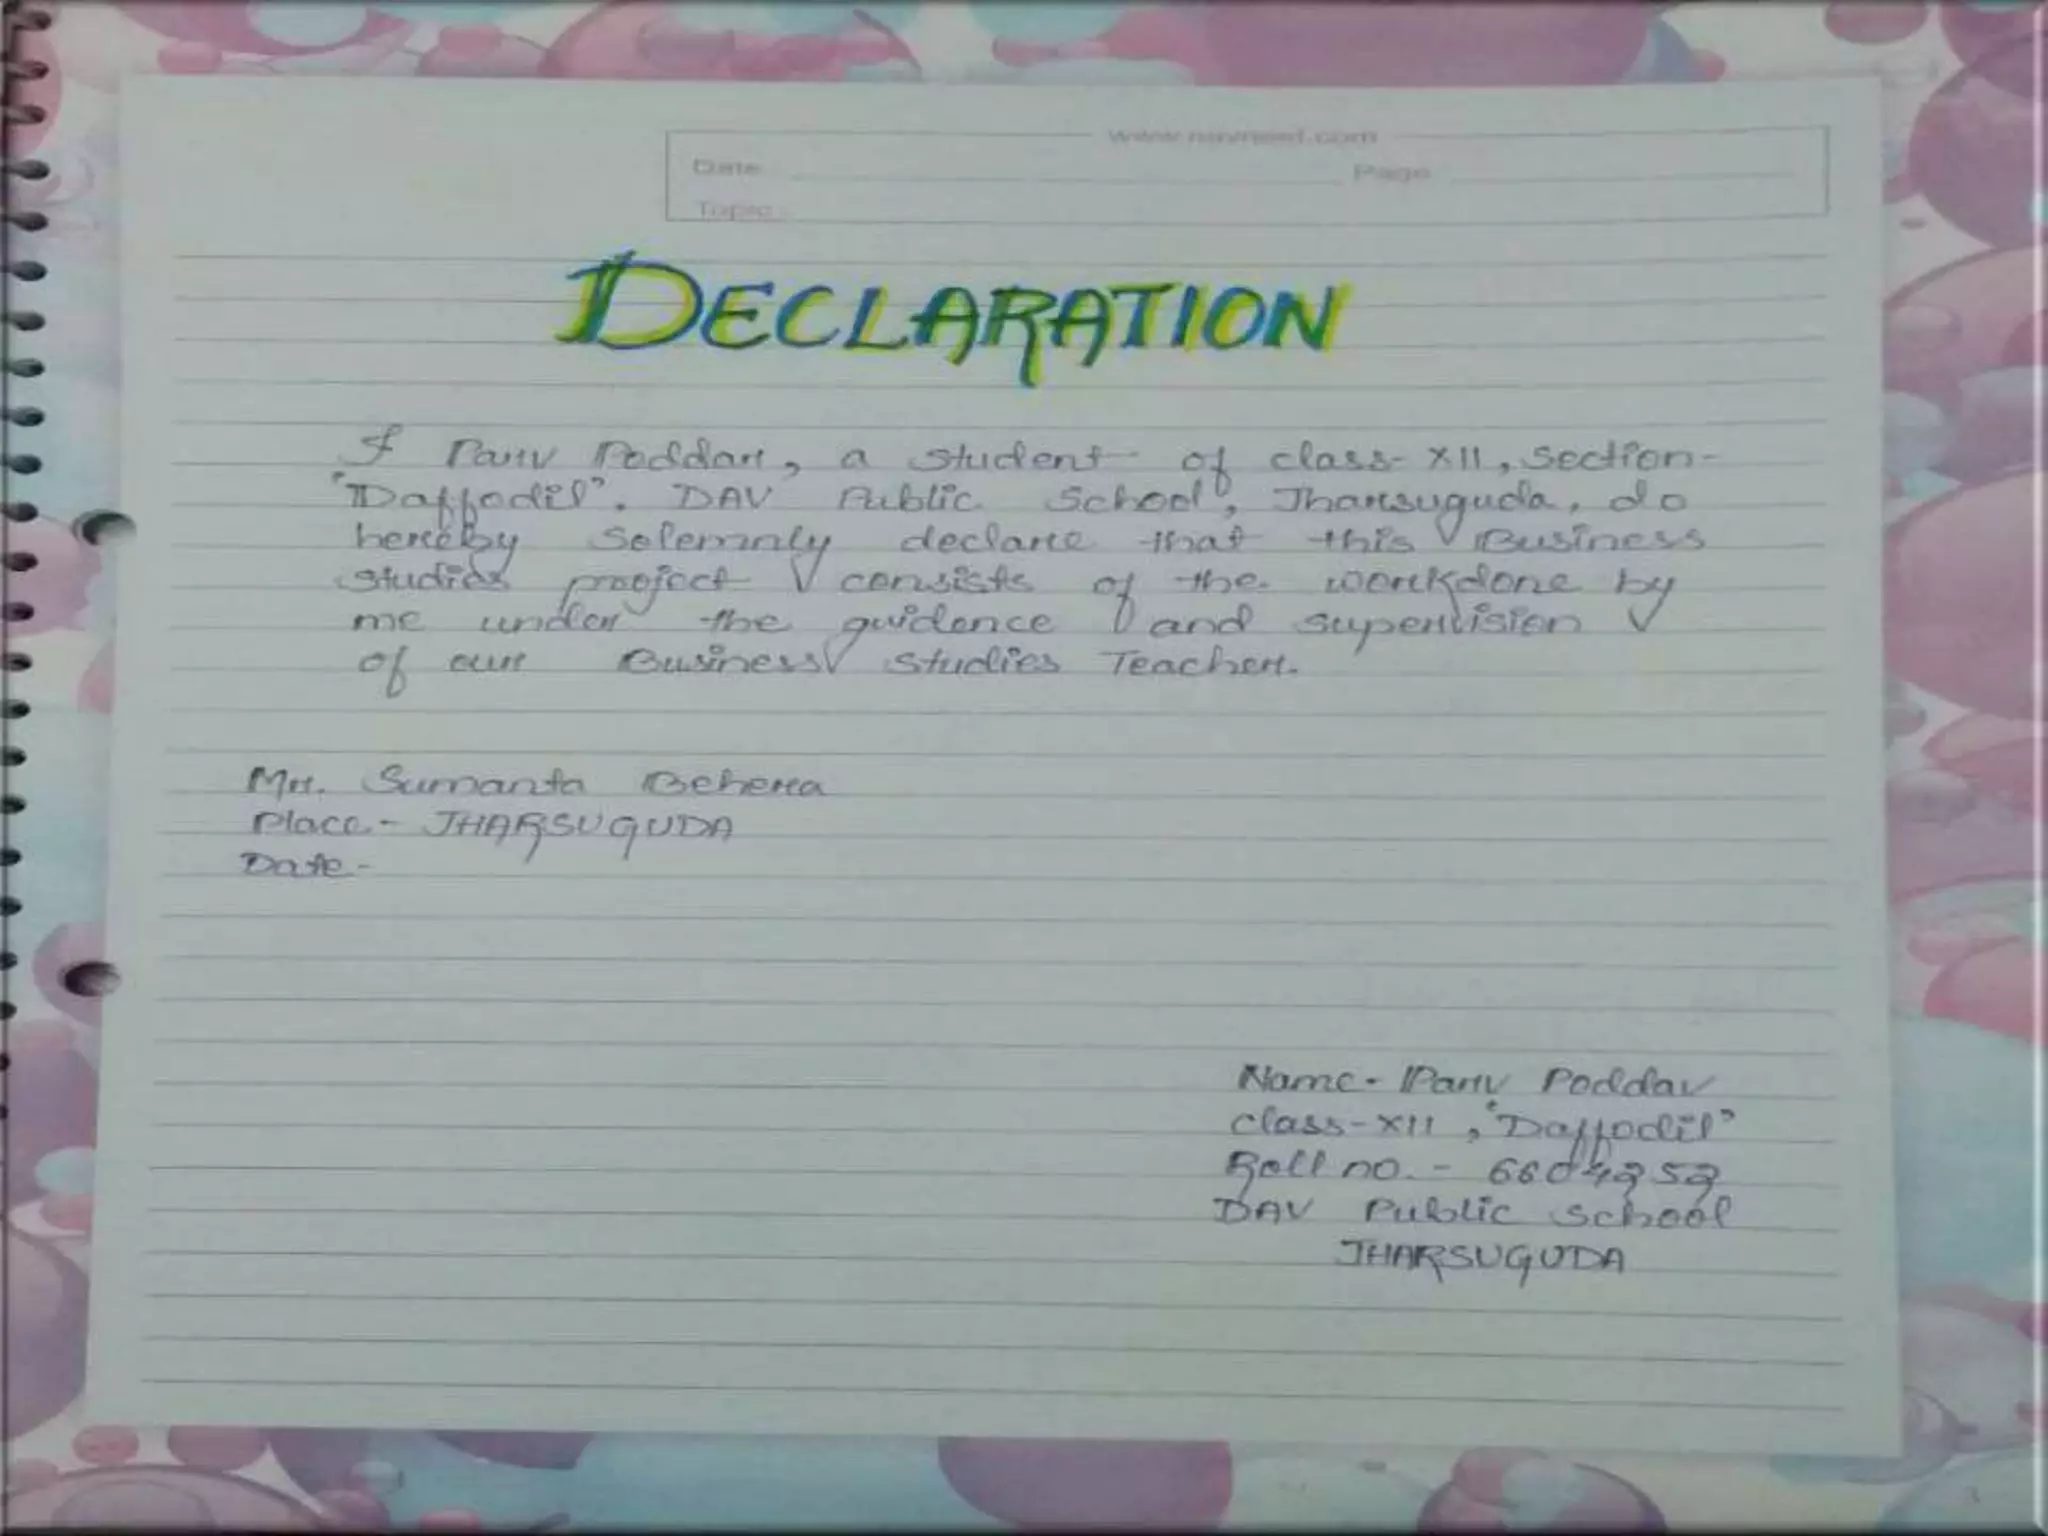 Date
Page
Topic
DECLARATION
I Parv Poddar, a student of class-XII, Section-
"Daffodil". DAV Public School, Jharsuguda, do
hereby Solemnly declare that this Business
studies project consists of the workdone by
me under the guidence and supervision
of our Business Studies Teacher.
Mr. Sumanta Behera
Place- JHARSUGUDA
Date-
Name- Parv Poddar
Class-XII, "Daffodil"
Roll no. - 6604252
DAV Public School
JHARSUGUDA